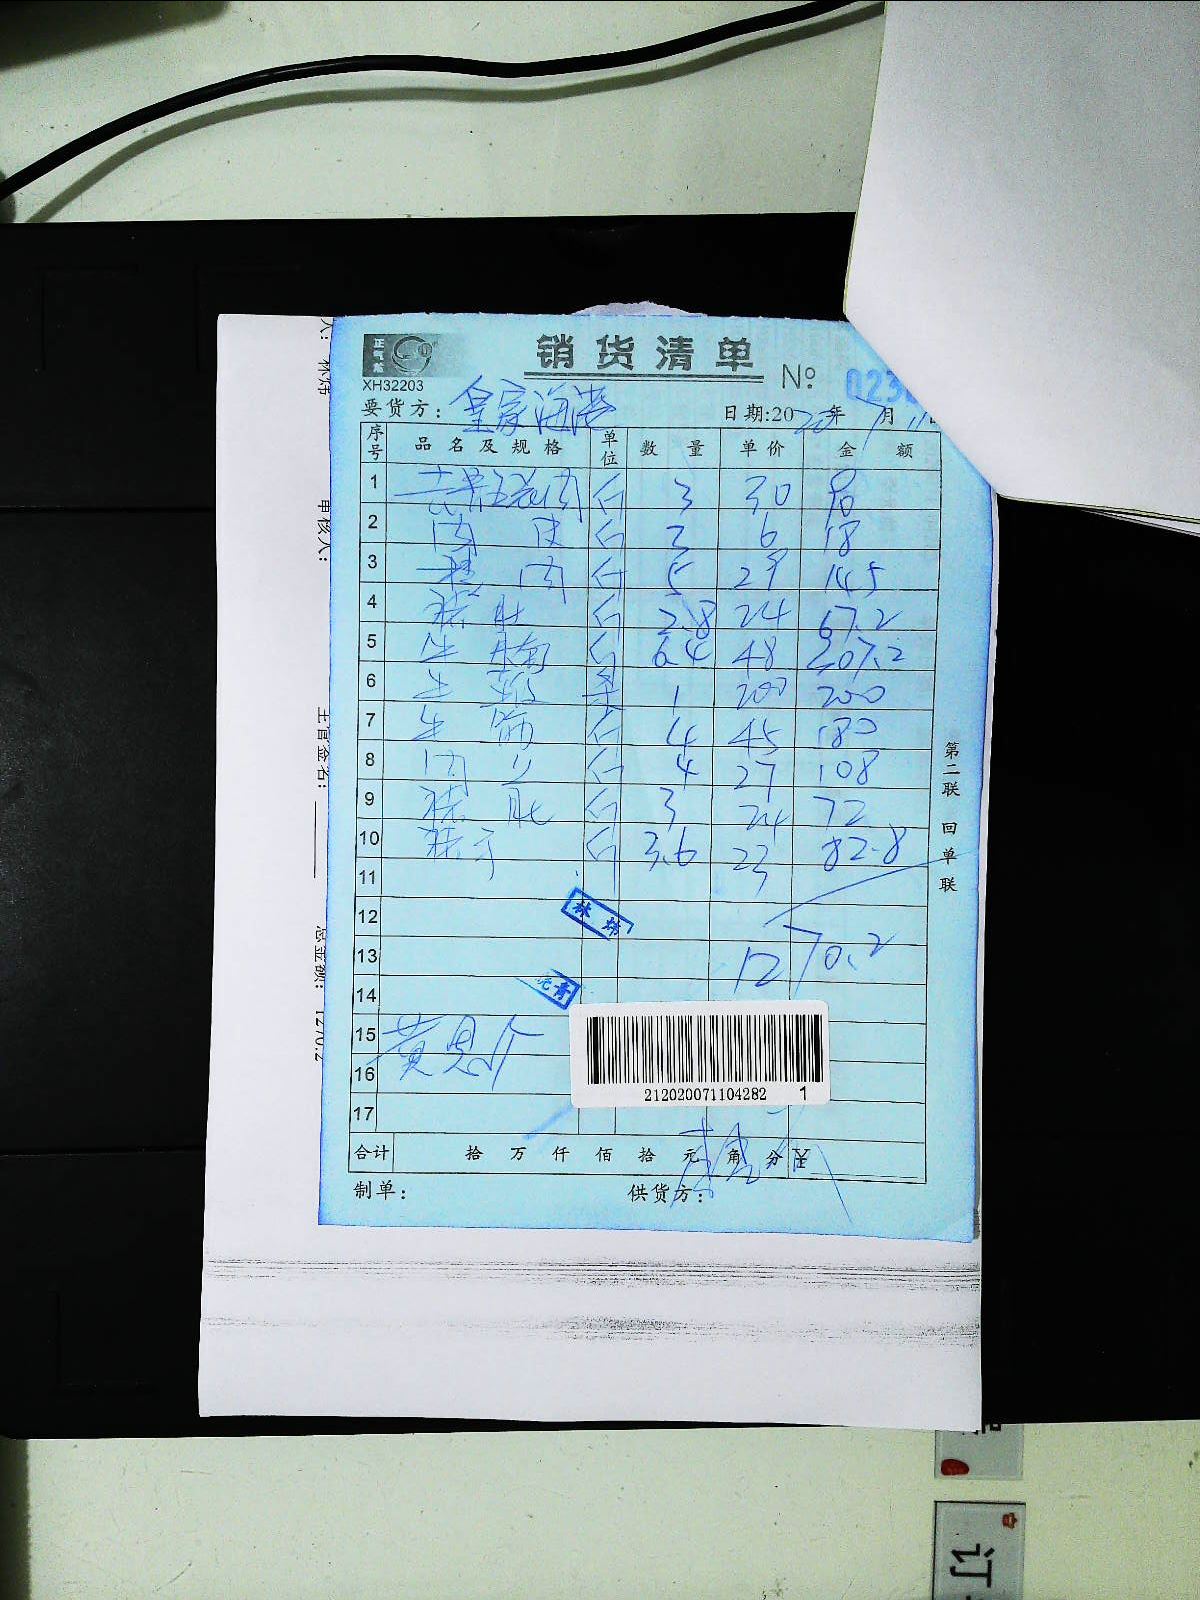 正气
XH32203
销货清单
№ 023
要货方：皇家海港
日期:2020年 1月11日
序号 品名及规格 单位 数量 单价 金额
1 斤 3 30 90
2 肉 斤 2 6 18
3 肉 斤 5 29 145
4 猪肚 斤 2.8 24 67.2
5 牛腩 斤 6.4 48 307.2
6 牛 条 1 200 200
7 牛 斤 4 45 180
8 肉 斤 4 27 108
9 猪肚 斤 3 24 72
10 猪手 斤 3.6 23 82.8
11
12
林
13 1270.2
14
15
16
17
212020071104282 1
合计 拾 万 仟 佰 拾 元 角 分
制单：
供货方：
第二联 回单联
审核人：
主管签名：
总金额： 1270.2
订